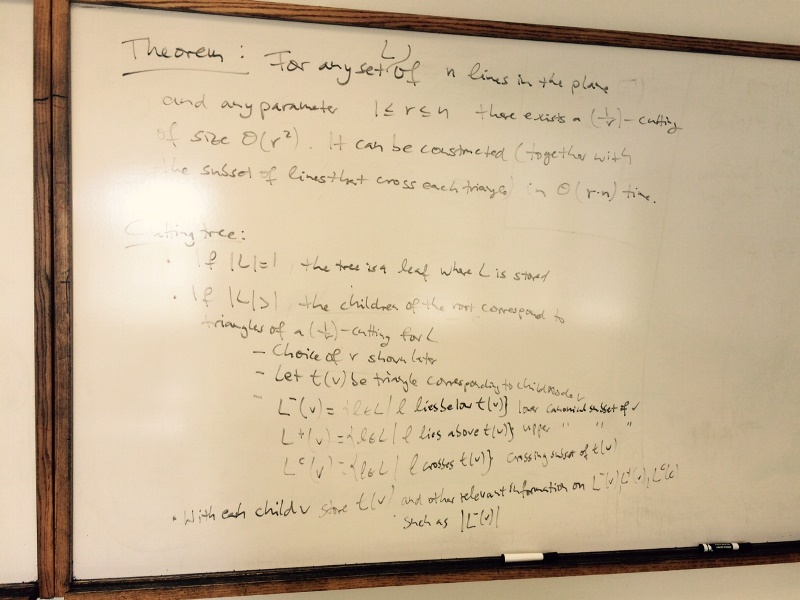 Theorem: For any set L of n lines in the plane
and any parameter 1 ≤ r ≤ n there exists a (1/r)-cutting
of size O(r²). It can be constructed (together with
the subset of lines that cross each triangle) in O(r·n) time.
Cutting tree:
• If |L|=1 the tree is a leaf where L is stored
• If |L|>1 the children of the root correspond to
triangles of a (1/r)-cutting for L
– Choice of r shown later
– Let t(v) be triangle corresponding to child node v
– L⁻(v) = {l∈L | l lies below t(v)} lower canonical subset of v
L⁺(v) = {l∈L | l lies above t(v)} upper " " "
Lᶜ(v) = {l∈L | l crosses t(v)} crossing subset of t(v)
• With each child v store t(v) and other relevant information on L⁻(v), L⁺(v), Lᶜ(v)
such as |L⁻(v)|